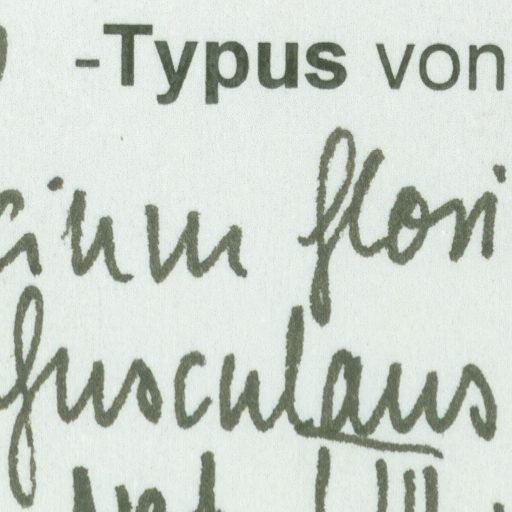 -Typus von
cium flori
fusculans